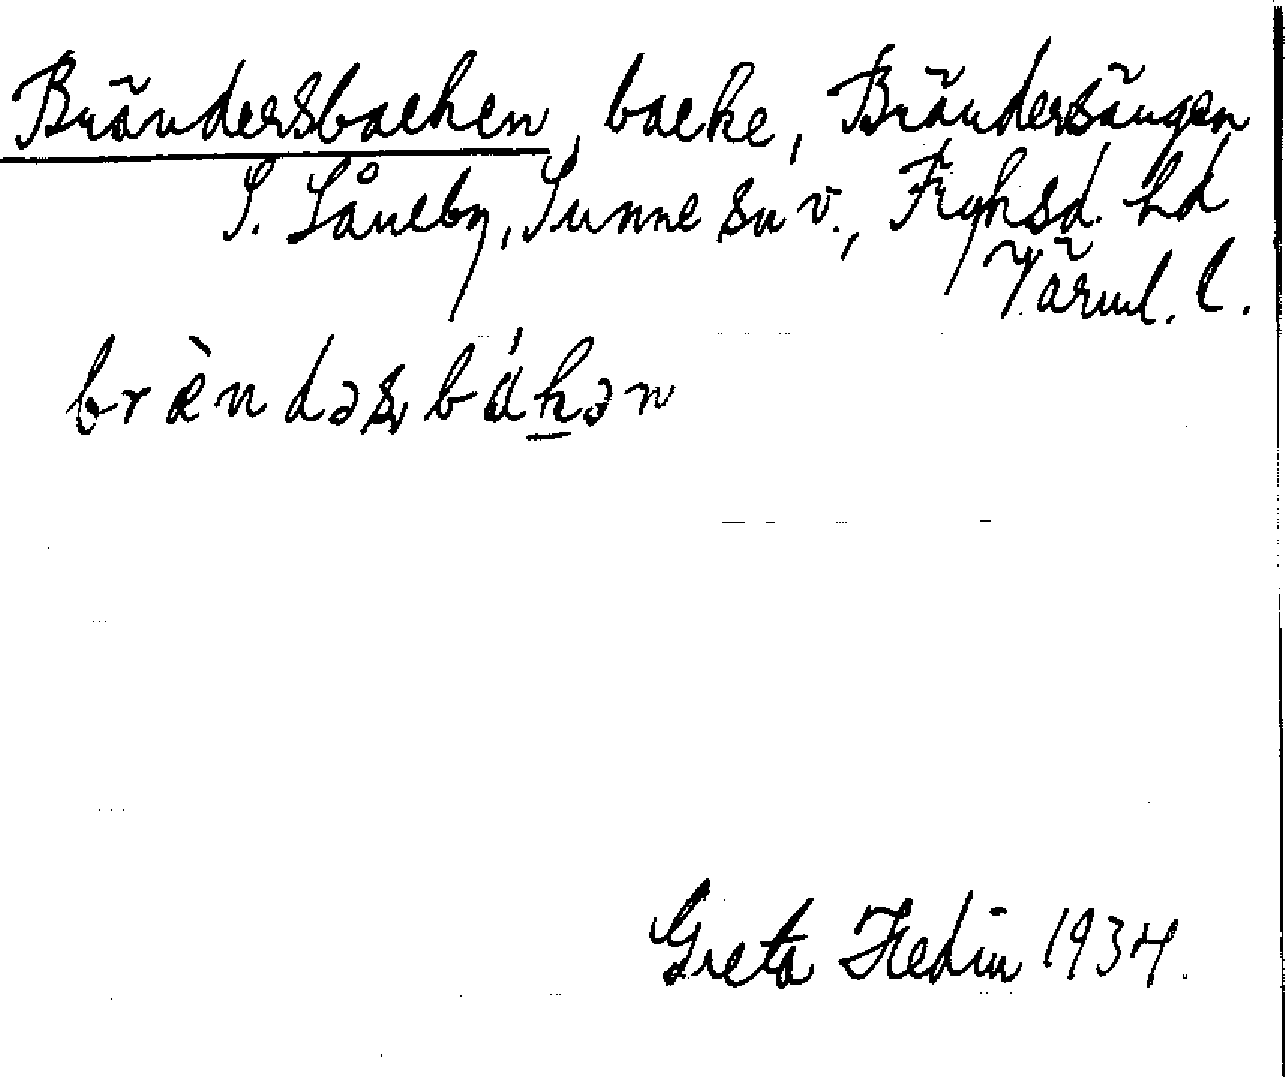 Brändersbacken, backe, Brändersängen
S. Såneby, Sunne sn v., Fryksd. hd
Värml. l.
brèndəsbákən
Greta Hedin 1934.